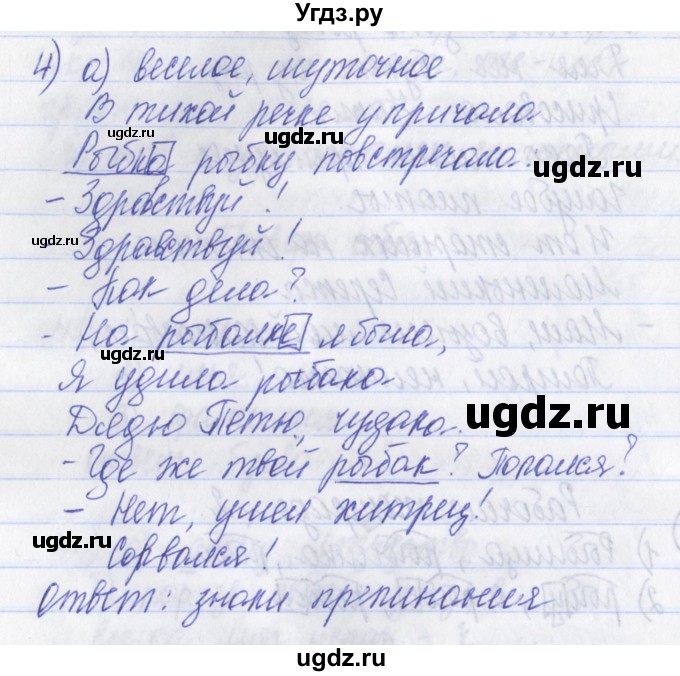 Угдз.ру
4) а) веселое, шуточное
В тихой речке у причала
Рыбка рыбку повстречала.
- Здравствуй!
Здравствуй!
- Как дела?
- На рыбалке я была,
Я удила рыбака
Дядю Петю, чудака.
- Где же твой рыбак? Попался?
- Нет, ушел хитрец!
Сорвался!
Ответ: знаки препинания
ugdz.ru
ugdz.ru
ugdz.ru
ugdz.ru
ugdz.ru
ugdz.ru
ugdz.ru
ugdz.ru